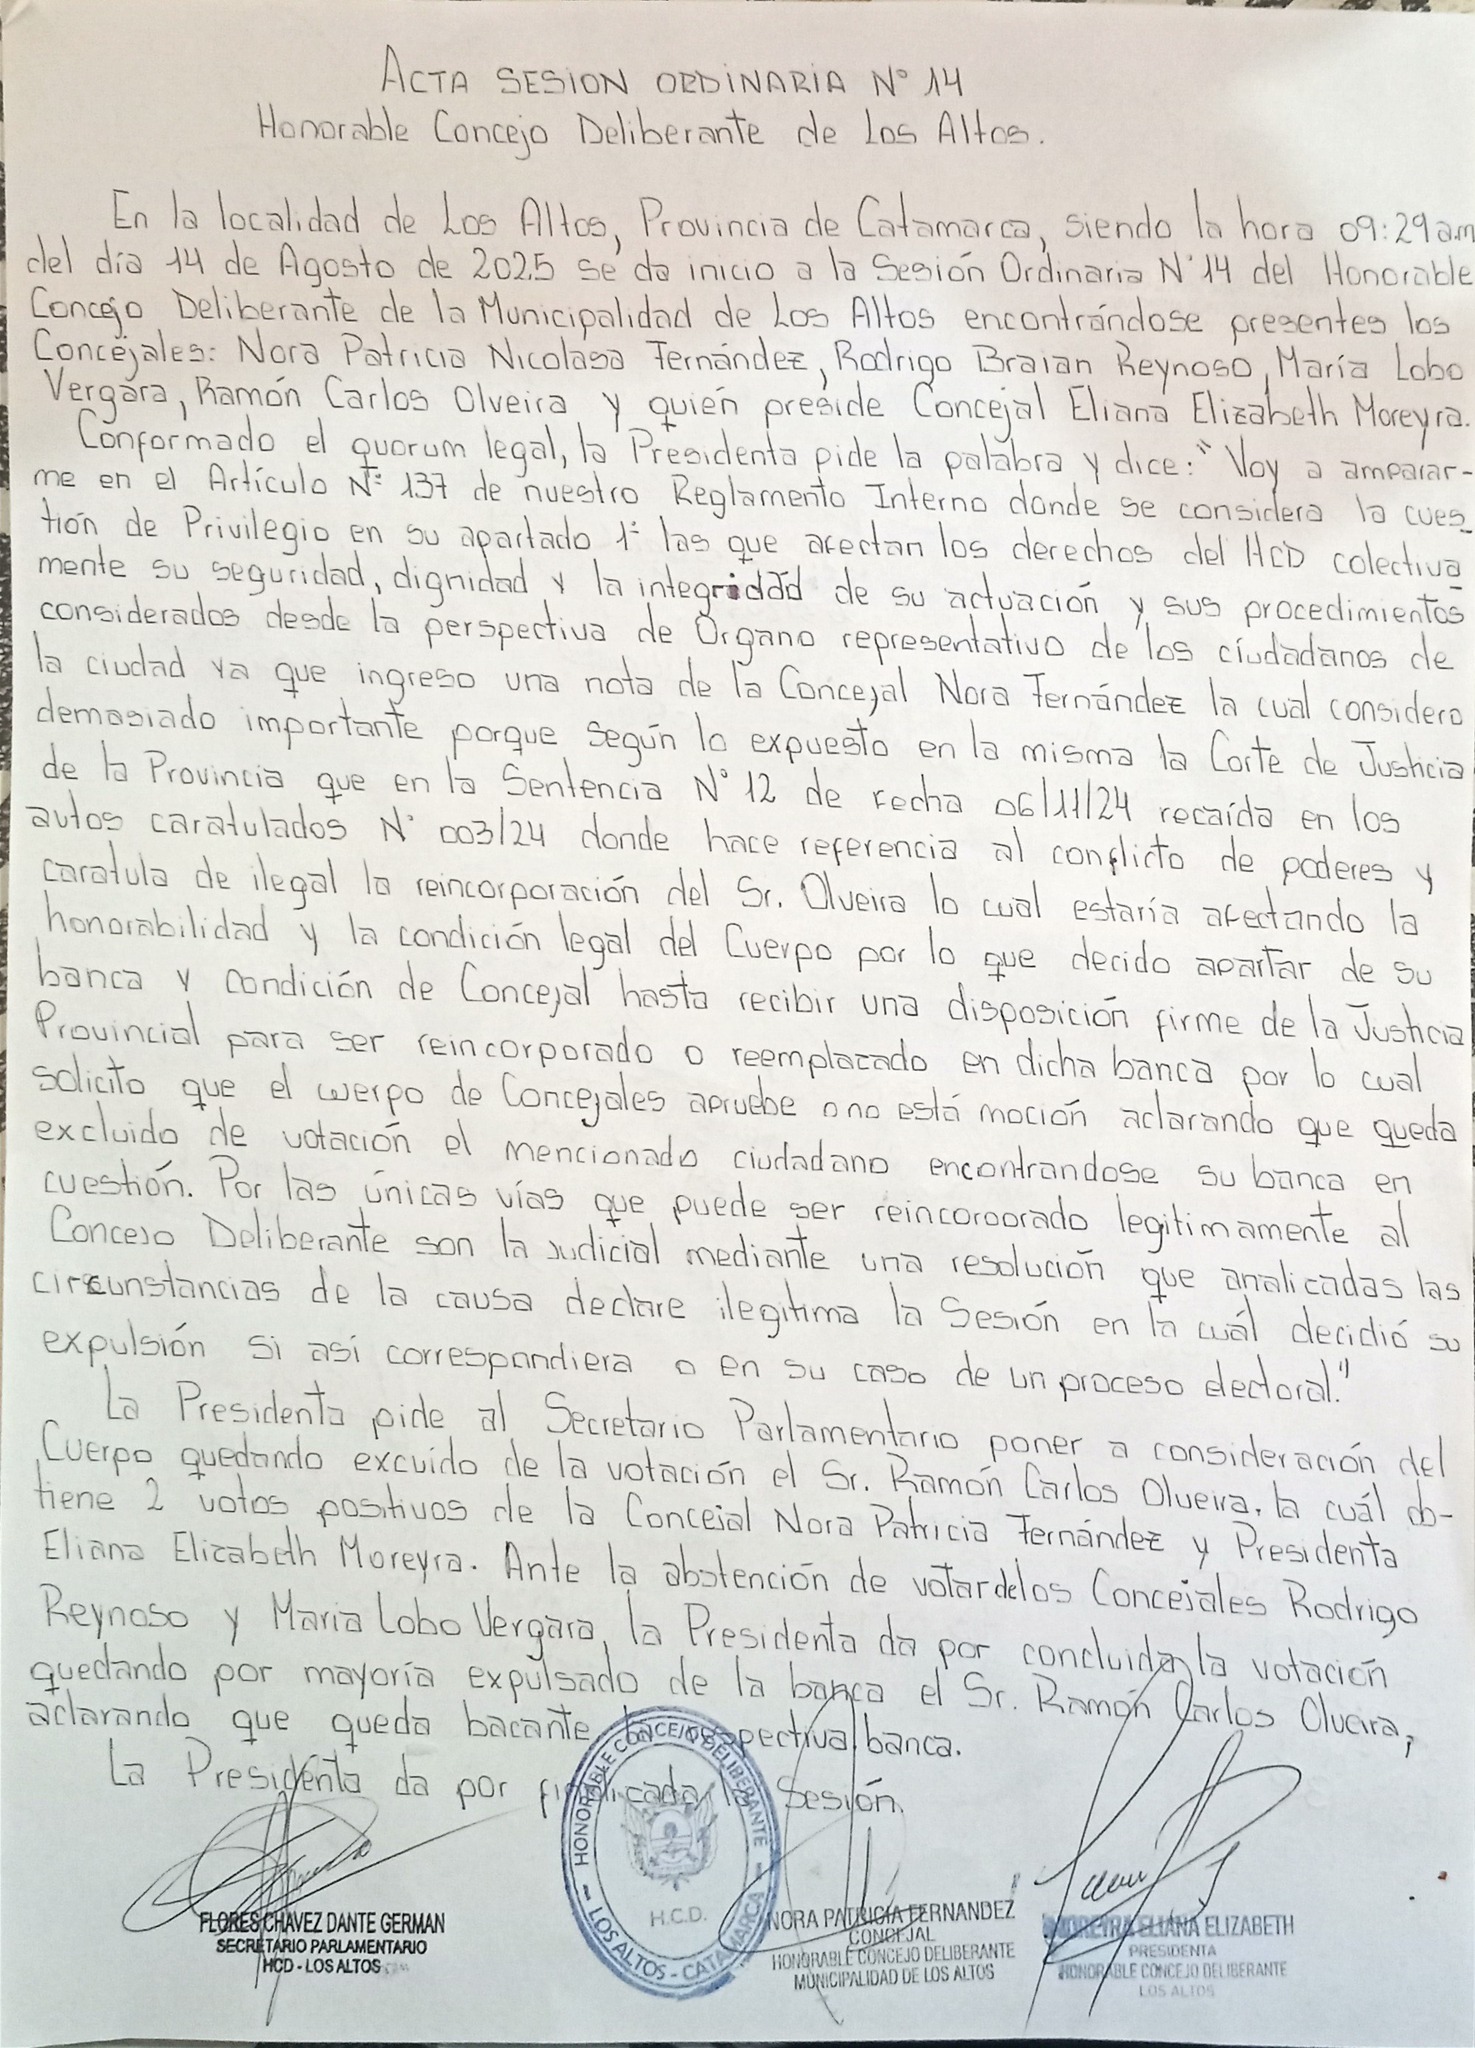 ACTA SESION ORDINARIA N° 14
Honorable Concejo Deliberante de Los Altos.
En la localidad de Los Altos, Provincia de Catamarca, siendo la hora 09:29am
del día 14 de Agosto de 2025 se da inicio a la Sesión Ordinaria N°14 del Honorable
Concejo Deliberante de la Municipalidad de Los Altos encontrándose presentes los
Concejales: Nora Patricia Nicolasa Fernández, Rodrigo Braian Reynoso, María Lobo
Vergara, Ramón Carlos Olveira y quién preside Concejal Eliana Elizabeth Moreyra.
Conformado el quorum legal, la Presidenta pide la palabra y dice: "Voy a amparar-
me en el Artículo N° 137 de nuestro Reglamento Interno donde se considera la cues_
tión de Privilegio en su apartado 1° las que afectan los derechos del HCD colectiva
mente su seguridad, dignidad y la integridad de su actuación y sus procedimientos
considerados desde la perspectiva de Organo representativo de los ciudadanos de
la ciudad ya que ingreso una nota de la Concejal Nora Fernández la cual considero
demasiado importante porque según lo expuesto en la misma la Corte de Justicia
de la Provincia que en la Sentencia N° 12 de fecha 06/11/24 recaída en los
autos caratulados N° 003/24 donde hace referencia al conflicto de poderes y
caratula de ilegal la reincorporación del Sr. Olveira lo cual estaría afectando la
honorabilidad y la condición legal del Cuerpo por lo que decido apartar de su
banca y condición de Concejal hasta recibir una disposición firme de la Justicia
Provincial para ser reincorporado o reemplazado en dicha banca por lo cual
solicito que el cuerpo de Concejales apruebe o no está moción aclarando que queda
excluido de votación el mencionado ciudadano encontrandose su banca en
cuestión. Por las únicas vías que puede ser reincorporado legitimamente al
Concejo Deliberante son la judicial mediante una resolución que analicadas las
circunstancias de la causa declare ilegitima la Sesión en la cuál decidió su
expulsión si así correspondiera o en su caso de un proceso electoral."
La Presidenta pide al Secretario Parlamentario poner a consideración del
Cuerpo quedando excuído de la votación el Sr. Ramón Carlos Olveira, la cuál ob-
tiene 2 votos positivos de la Concejal Nora Patricia Fernández y Presidenta
Eliana Elizabeth Moreyra. Ante la abstención de votar de los Concejales Rodrigo
Reynoso y Maria Lobo Vergara, la Presidenta da por concluida la votación
quedando por mayoría expulsado de la banca el Sr. Ramón Carlos Olveira,
aclarando que queda bacante la respectiva banca.
La Presidenta da por finalicada la Sesión.
HONORABLE CONCEJO DELIBERANTE
H.C.D.
LOS ALTOS - CATAMARCA
FLORES CHAVEZ DANTE GERMAN
SECRETARIO PARLAMENTARIO
HCD - LOS ALTOS
NORA PATRICIA FERNANDEZ
CONCEJAL
HONORABLE CONCEJO DELIBERANTE
MUNICIPALIDAD DE LOS ALTOS
MOREYRA ELIANA ELIZABETH
PRESIDENTA
HONORABLE CONCEJO DELIBERANTE
LOS ALTOS